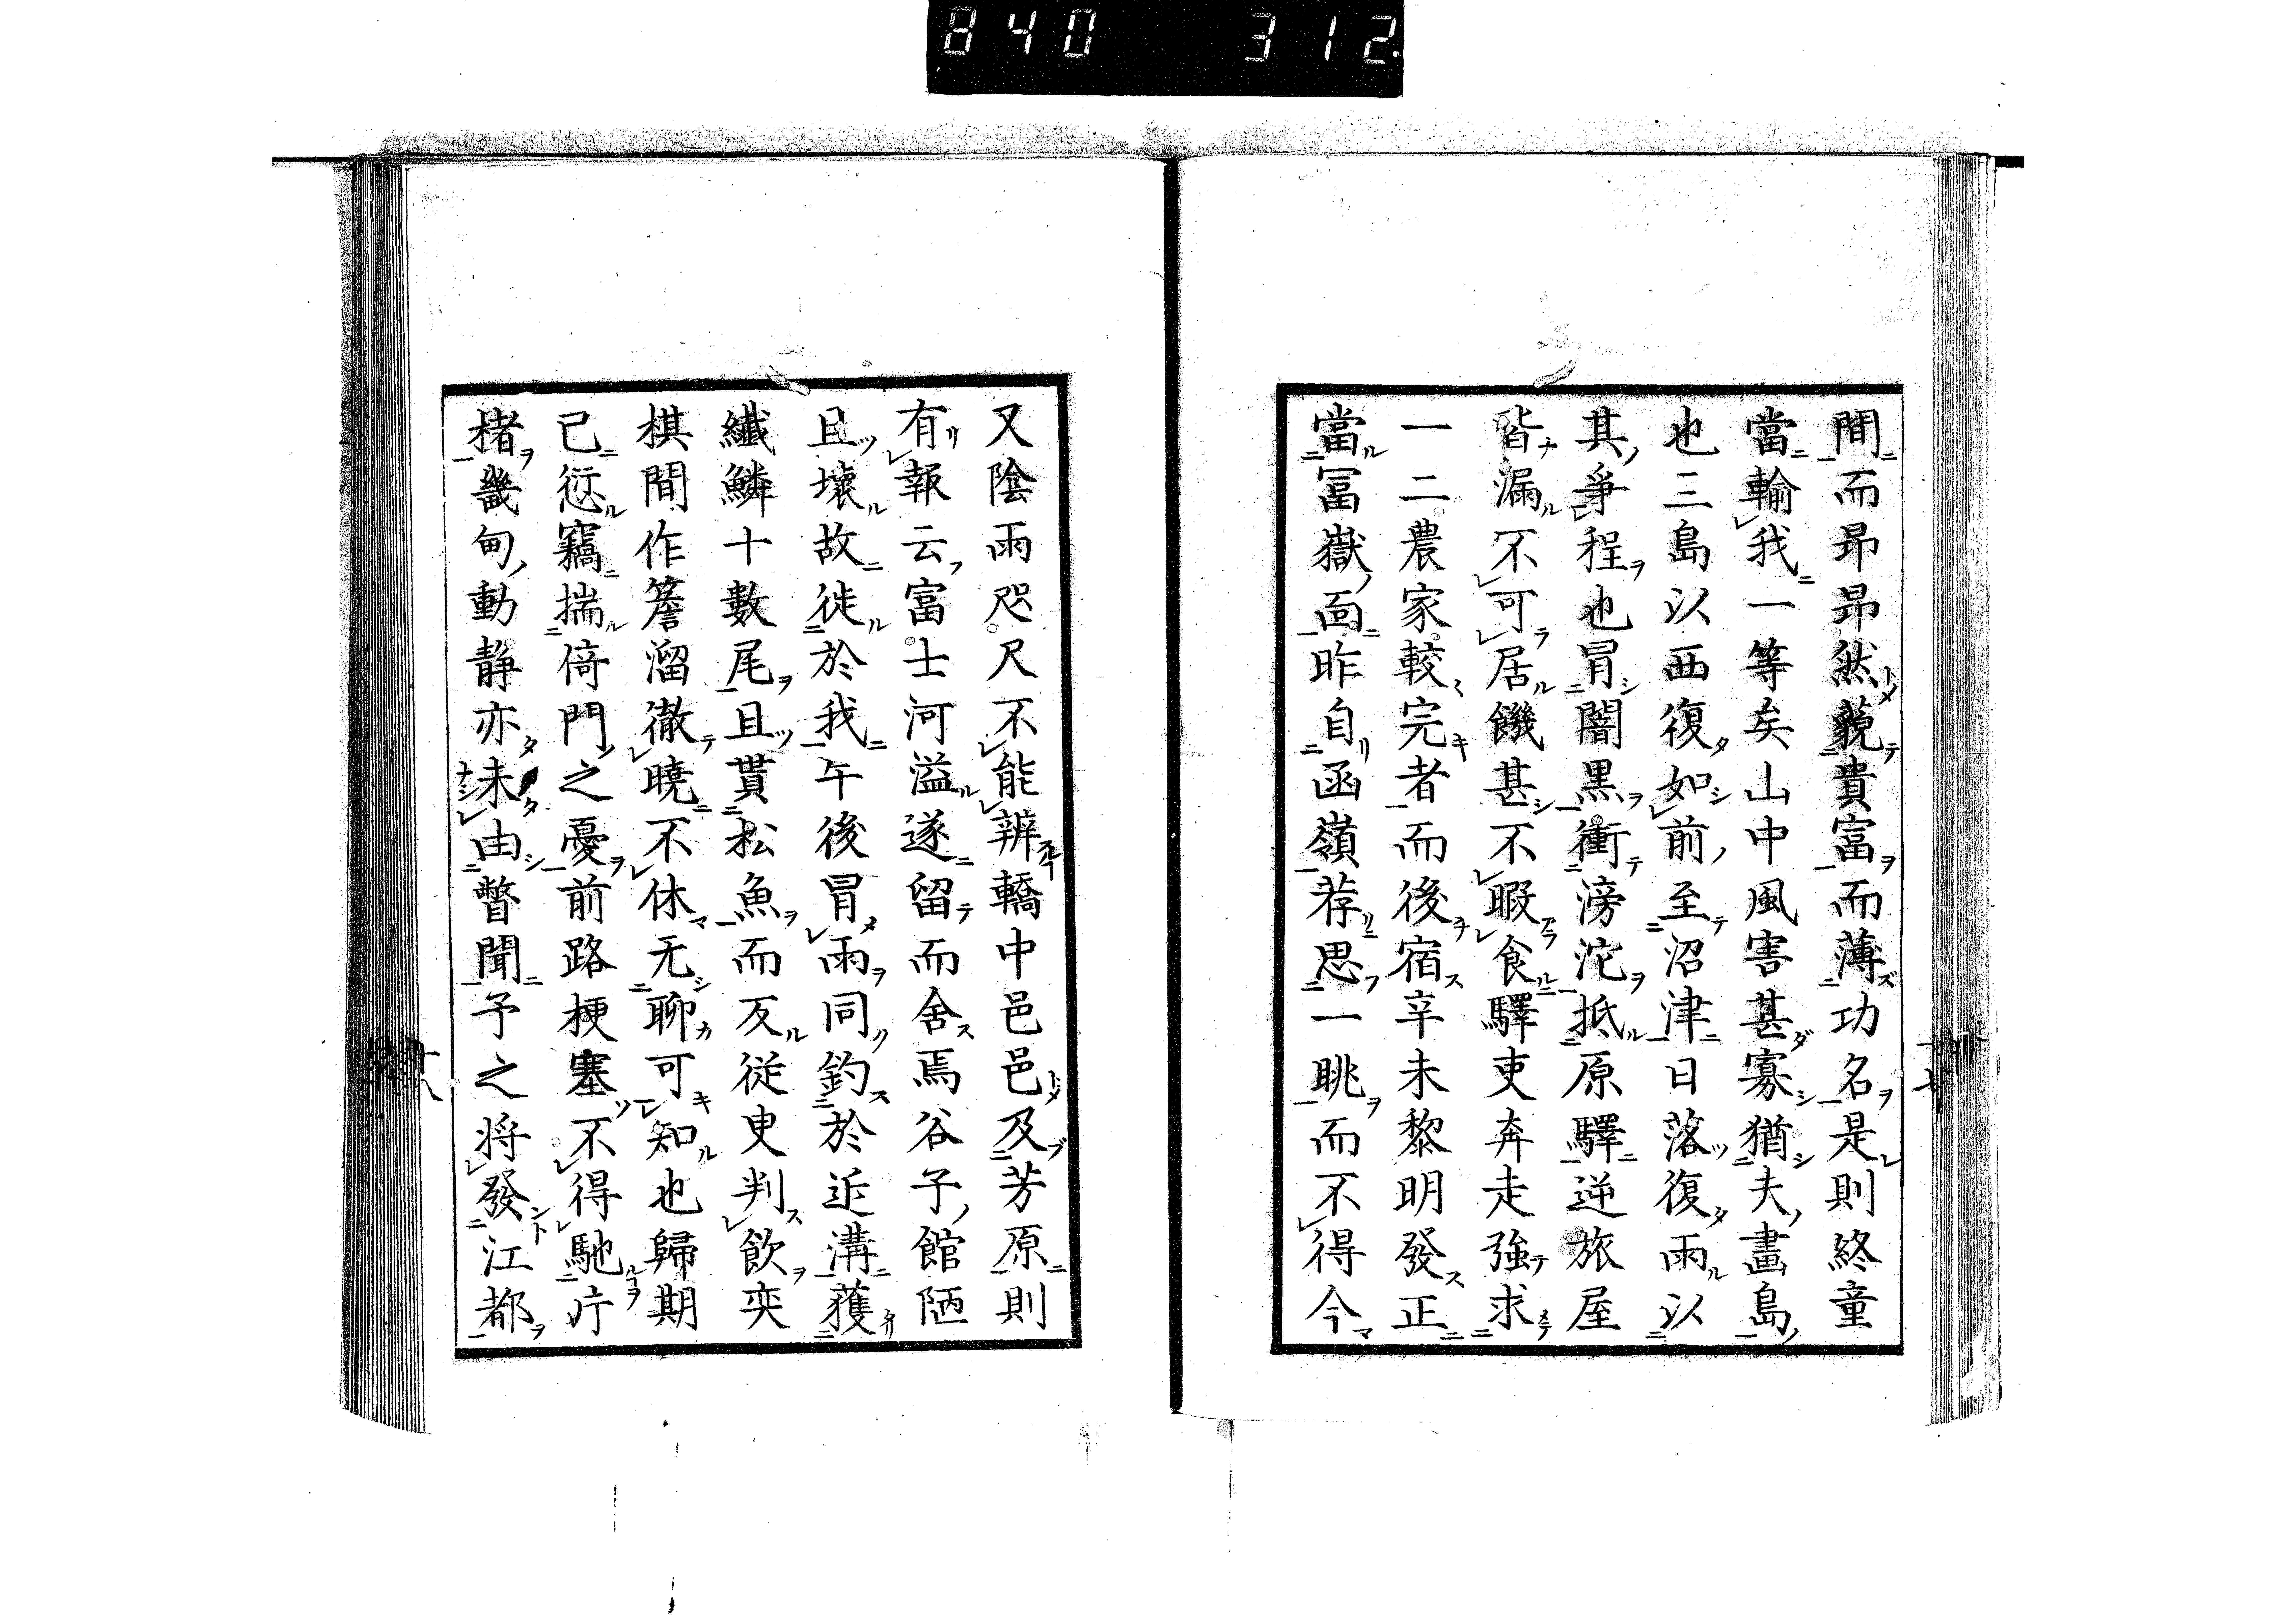 840 312
間而昂昂然藐貴富而薄功名是則終童
當輸我一等矣山中風害甚寡猶夫畫島
也三島以西復如前至沼津日落復雨以
其爭程也冒闇黒衝滂沱抵原驛逆旅屋
皆漏不可居饑甚不暇食驛吏奔走強求
一二農家較完者而後宿辛未黎明發正
當冨嶽面昨自函嶺荐思一眺而不得今
又陰雨咫尺不能辨轎中邑邑及芳原則
有報云富士河溢遂留而舍焉谷子館陋
且壊故徙於我午後冒雨同釣於近溝獲
纖鱗十數尾且貰松魚而反従吏判飲奕
棋間作簷溜徹曉不休无聊可知也歸期
已愆竊揣倚門之憂前路梗塞不得馳片
楮畿甸動静亦未由瞥聞予之将發江都